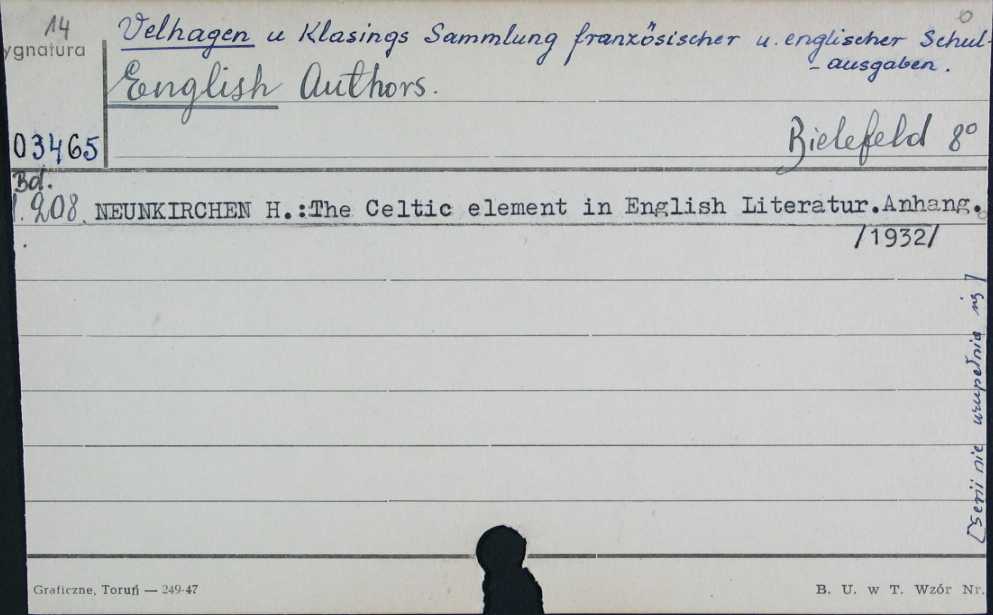 14
ygnatura
Velhagen u Klasings Sammlung französischer u. englischer Schul-
-ausgaben.
English Authors.
03465
Bielefeld 8°
Bd.
1. 208. NEUNKIRCHEN H.:The Celtic element in English Literatur.Anhang.
/1932/
[Serii nie uzupełnia się]
Graficzne, Toruń — 249-47
B. U. w T. Wzór Nr.